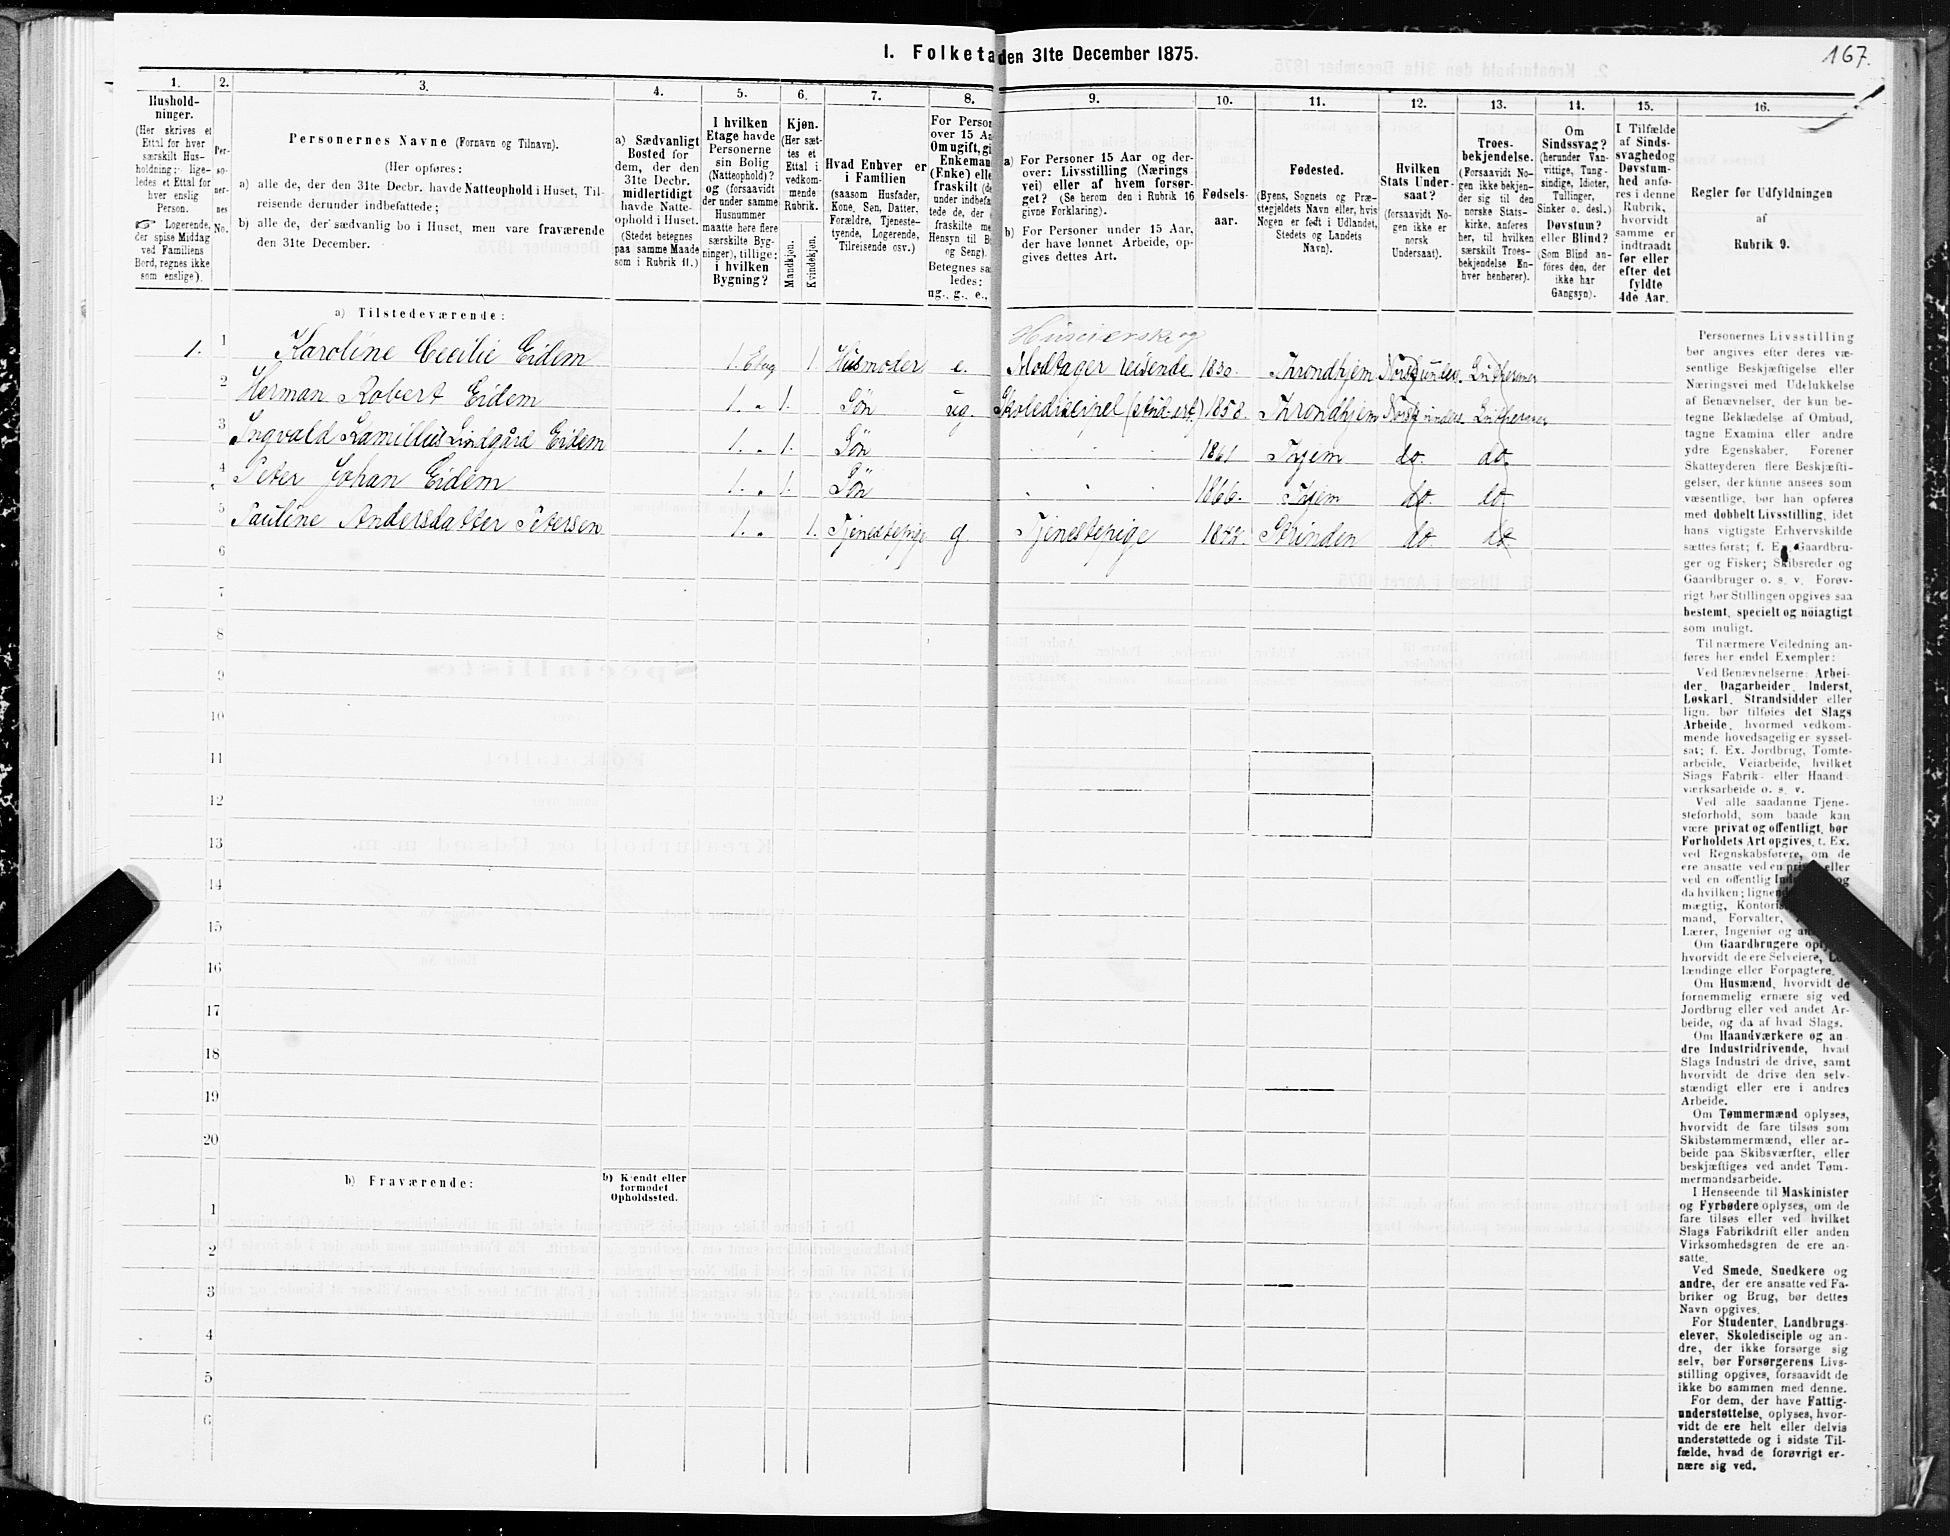 I. Folketa den 31te December 1875.
167.
1.
2.
3.
4.
5.
6.
7.
8.
9.
10.
11.
12.
13.
14.
15.
16.
Hushold-
ninger.
(Her skrives et
Ettal for hver
særskilt Hus-
holdning; lige-
ledes et Ettal for
hver enslig
Person.
☞ Logerende,
der spise Middag
ved Familiens
Bord, regnes ikke
som enslige).
Per-
so-
ner-
nes
No.
Personernes Navne (Fornavn og Tilnavn).
(Her opføres:
a) alle de, der den 31te Decbr. havde Natteophold i Huset, Til-
reisende derunder indbefattede;
b) alle de, der sædvanlig bo i Huset, men vare fraværende
den 31te December.
a) Sædvanligt
Bosted for
dem, der den
31te Decbr.
midlertidigt
havde Natte-
ophold i Huset.
(Stedet betegnes
paa samme Maade
som i Rubrik 11.)
I hvilken
Etage havde
Personerne
sin Bolig
(Natteophold)?
og (forsaavidt
der under samme
Husnummer
maatte høre flere
særskilte Byg-
ninger), tillige:
i hvilken
Bygning?
Kjøn.
(Her sæt-
tes et
Ettal i
vedkom-
mende
Rubrik.
Mandkjøn.
Kvindekjøn.
Hvad Enhver er
i Familien
(saasom Husfader,
Kone, Søn, Datter,
Forældre, Tjeneste-
tyende, Logerende,
Tilreisende osv.)
For Person
over 15 Aa
Om ugift, gi
Enkeman
(Enke) elle
fraskilt (de
under indbefa
tede de, der
fraskilte me
Hensyn til B
og Seng).
Betegnes saa
ledes:
ug., g., e.,
a) For Personer 15 Aar og der-
over: Livsstilling (Nærings
vei) eller af hvem forsør-
get? (Se herom den i Rubrik 16
givne Forklaring).
b) For Personer under 15 Aar,
der have lønnet Arbeide, op-
gives dettes Art.
Fødsels-
aar.
Fødested.
(Byens, Sognets og Præ-
stegjeldets Navn eller, hvis
Nogen er født i Udlandet,
Stedets og Landets
Navn).
Hvilken
Stats Under-
saat?
(forsaavidt No-
gen ikke er
norsk
Undersaat).
Troes-
bekjendelse.
(Forsaavidt No-
gen ikke bekjen-
der sig til den
norske Stats-
kirke, anføres
her, til hvilken
særskilt Troes-
bekjendelse En-
hver henhører).
Om
Sindssvag?
(herunder Van-
vittige, Tung-
sindige, Idioter,
Tullinger,
Sinker o. desl.)
Døvstum?
eller Blind?
(Som Blind an-
føres den, der
ikke har
Gangsyn).
I Tilfælde
af Sinds-
svaghed og
Døvstum-
hed anfø-
res i denne
Rubrik,
hvorvidt
samme er
indtraadt
før eller
efter det
fyldte
4de Aar.
Regler for Udfyldningen
af
Rubrik 9.
a) Tilstedeværende:
Huseierske og
1. 1 Karoline Cecilie Eidem 1. Etag 1. Husmoder e. Modtager reisende 1830. Throndhjem Norsk under. Lutheraner
2 Herman Robert Eidem 1. „ 1. Søn ug. 1858. Throndhjem Norsk unders. Lutheraner
3 Ingvald Kamillus Lindgård Eidem 1. „ 1. Søn 1861 Trhjem do. do.
4 Peter Johan Eidem 1. „ 1. Søn 1866. Trhjem do. do
5 Pauline Andersdatter Petersen 1. „ 1. Tjenestepige g. Tjenestepige Strinden do. do
6
7
8
9
10
11
12
13
14
15
16
17
18
19
20
b) Fraværende:
b) Kjendt eller
formodet
Opholdssted.
1
2
3
4
5
6
Personernes Livsstilling
bør angives efter deres væ-
sentlige Beskjæftigelse eller
Næringsvei med Udelukkelse
af Benævnelser, der kun be-
tegne Beklædelse af Ombud,
tagne Examina eller andre
ydre Egenskaber. Forener
Skatteyderen flere Beskjæfti-
gelser, der kunne ansees som
væsentlige, bør han opføres
med dobbelt Livsstilling, idet
hans vigtigste Erhvervskilde
sættes først; f. Ex. Gaardbru-
ger og Fisker; Skibsreder og
Gaardbruger o. s. v. Forøv-
rigt bør Stillingen opgives saa
bestemt, specielt og nöiagtigt
som muligt.
Til nærmere Veiledning an-
føres her endel Exempler:
Ved Benævnelserne: Arbei-
der, Dagarbeider, Inderst,
Løskarl, Strandsidder eller
lign. bør tilføies det Slags
Arbeide, hvormed vedkom-
mende hovedsagelig er syssel-
sat; f. Ex. Jordbrug, Tomte-
arbeide, Veiarbeide, hvilket
Slags Fabrik- eller Haand-
værksarbeide o. s. v.
Ved alle saadanne Tjene-
steforhold, som baade kan
være privat og offentligt, bør
Forholdets Art opgives, t. Ex.
ved Regnskabsførere, om de
ere ansatte ved en eller
ved en offentlig og
da hvilken;
mægtig,
mand, Forvalter,
Lærer, Ingeniør og
Om Gaardbrugere
hvorvidt de ere Selveiere,
lændinge eller Forpagtere.
Om Husmænd, hvorvidt de
fornemmelig ernære sig ved
Jordbrug eller ved andet Ar-
beide, og da af hvad Slags.
Om Haandværkere og an-
dre Industridrivende, hvad
Slags Industri de drive, samt
hvorvidt de drive den selv-
stændigt eller ere i andres
Arbeide.
Om Tømmermænd oplyses,
hvorvidt de fare tilsøs som
Skibstømmermænd, eller ar-
beide paa Skibsværfter, eller
beskjæftiges ved andet Tøm-
mermandsarbeide.
I Henseende til Maskinister
og Fyrbødere oplyses, om de
fare tilsøs eller ved hvilket
Slags Fabrikdrift eller anden
Virksomhedsgren de ere an-
satte.
Ved Smede, Snedkere og
andre, der ere ansatte ved Fa-
briker og Brug, bør dettes
Navn opgives.
For Studenter, Landbrugs-
elever, Skoledisciple og an-
dre, der ikke forsørge sig
selv, bør Forsørgerens Livs-
stilling opgives, forsaavidt de
ikke bo sammen med denne.
For dem, der have Fattig-
understøttelse, oplyses, hvor-
vidt de ere helt eller delvis
understøttede og i sidste Til-
fælde, hvad de forøvrigt er-
nære sig ved.